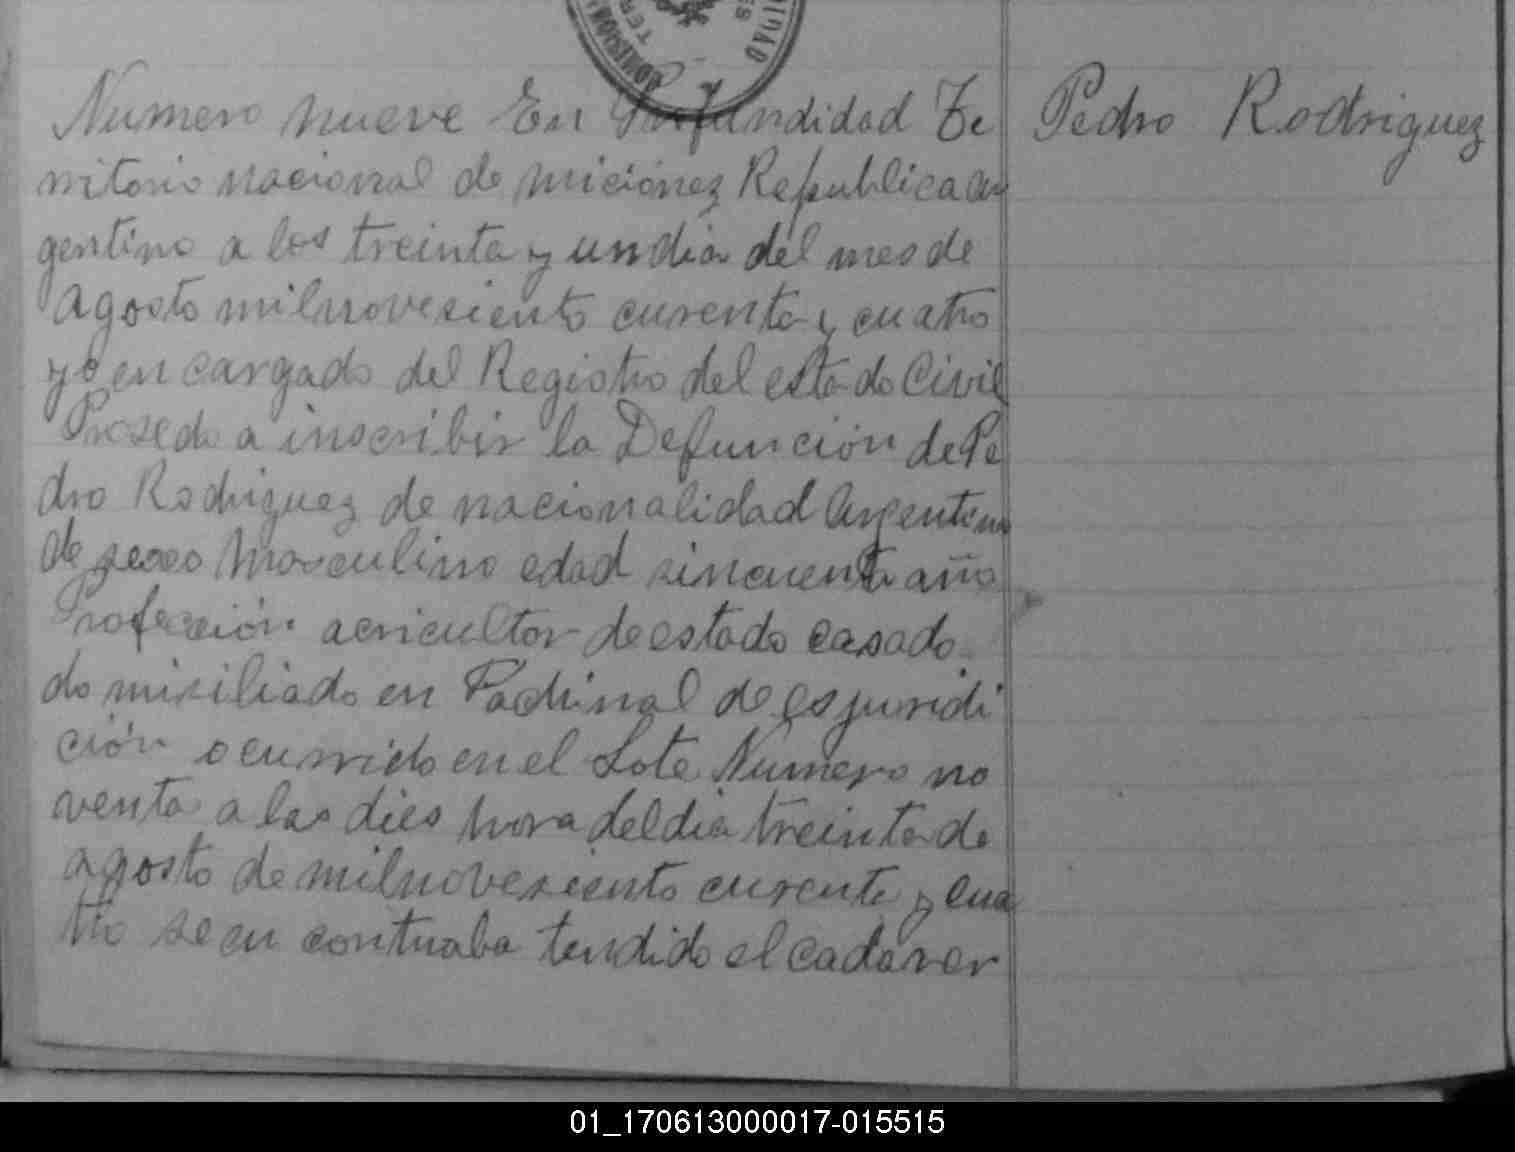 Numero nueve En Profundidad Te
rritorio nacional de miciónez Republica ar
gentino a los treinta y un dia del mes de
agosto milnovesiento curenta y cuatro
yo en cargado del Registro del estado Civil
Prosedo a inscribir la Defunción de Pe
dro Rodriguez de nacionalidad Argentino
de sexso Masculino edad sincuenta año
Profección acricultor de estado casado
do misiliado en Padrinal de es juridi
ción ocurrido en el Lote Numero no
venta a las dies hora del dia treinta de
agosto de milnovesiento curente y cua
tro se en contraba tendido el cadaver
Pedro Rodriguez
01_170613000017-015515